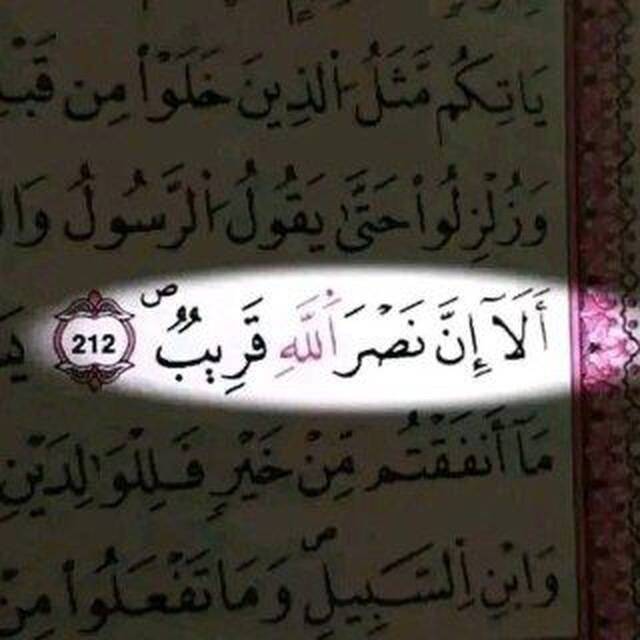 يَاتِكُم مَّثَلُ اُ۬لذِينَ خَلَوْاْ مِن
وَزُلْزِلُواْ حَتَّىٰ يَقُولُ اُ۬لرَّسُولُ
أَلَآ إِنَّ نَصْرَ اَ۬للَّهِ قَرِيبٌ ص 212
مَآ أَنفَقْتُم مِّنْ خَيْرٍ فَلِلْوَٰلِدَيْنِ
وَابْنِ اِ۬لسَّبِيلِ ص وَمَا تَفْعَلُواْ مِنْ